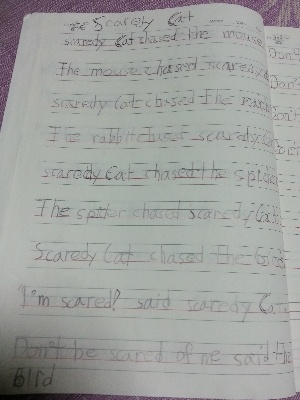 Scarety Cat
scaredy Cat chased the mouse
The mouse chased scaredy
scaredy Cat chased The
The rabbit chased scaredy
scaredy Cat chased the spider
The spider chased scaredy Cat
Scaredy Cat chased the
I'm scared? said scaredy Cat
Don't be scared of me said the
bird